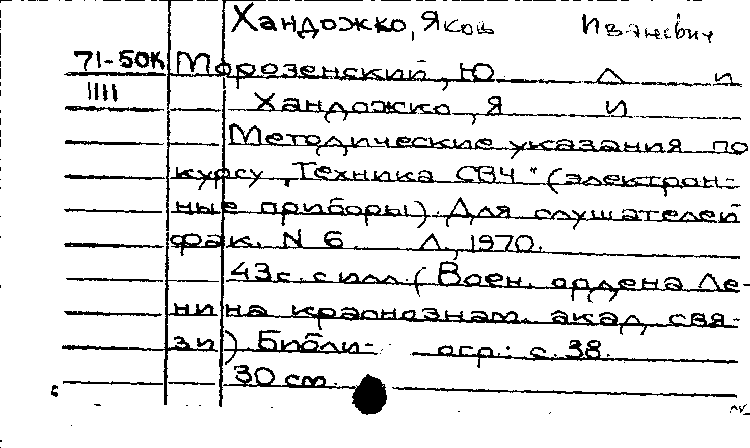 Хандожко, Яков Иванович
71-50К Морозенский, Ю Л и
1111 Хандожко, Я И
Методические указания по
курсу „Техника СВЧ" (электрон-
ные приборы). Для слушателей
фак. N 6 Л, 1970.
43с. с илл. (Воен. ордена Ле-
нина краснознам. акад. свя-
зи) Библи- огр.: с. 38.
30 см.